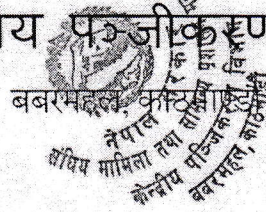 य पञ्जीकरण
बबरमहल, काठमाण्डौ
नेपाल सरकार
संघिय मामिला तथा
केन्द्रीय पञ्जिकरण विभाग
बबरमहल, काठमाडौं